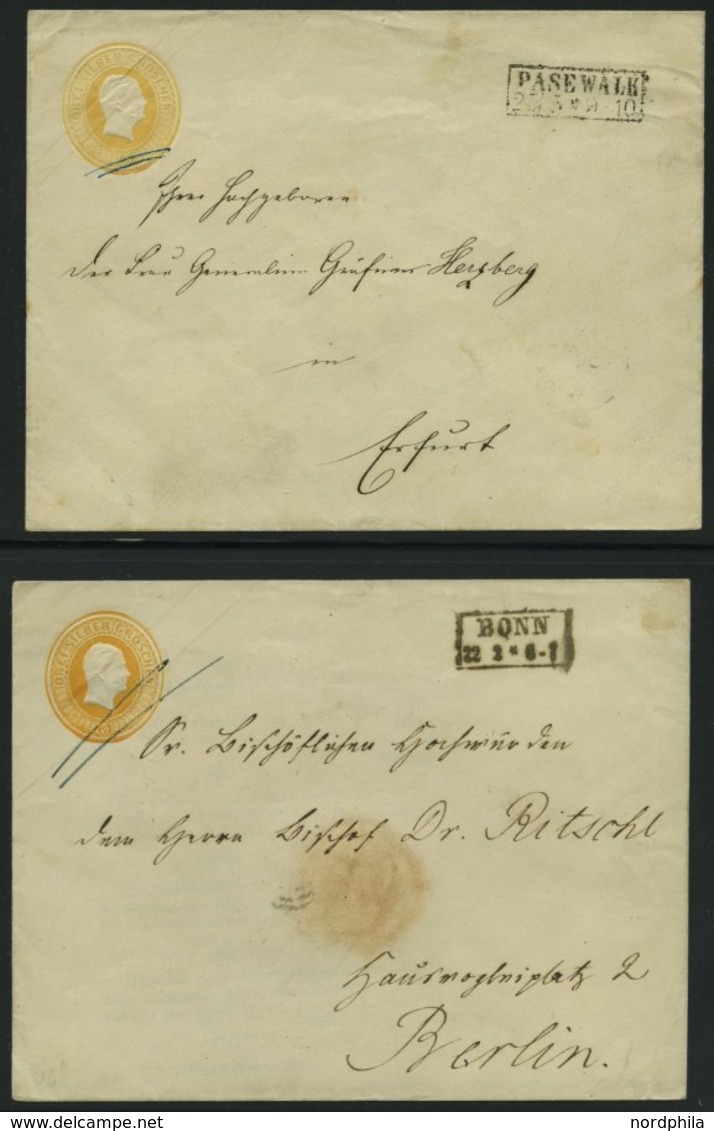 DREI SILBER GROSCHEN
PASEWALK
9-10
Ihrer Hochgeboren
der Frau Generalin Gräfinn Herzberg
in
Erfurt
DREI SILBER GROSCHEN
BONN
22 2 * 6-7
Sr. Bischöflichen Hochwürden
dem Herrn Bischof Dr. Ritschl
Hausvogteiplatz 2
Berlin.
www.delcampe.net
nordphila